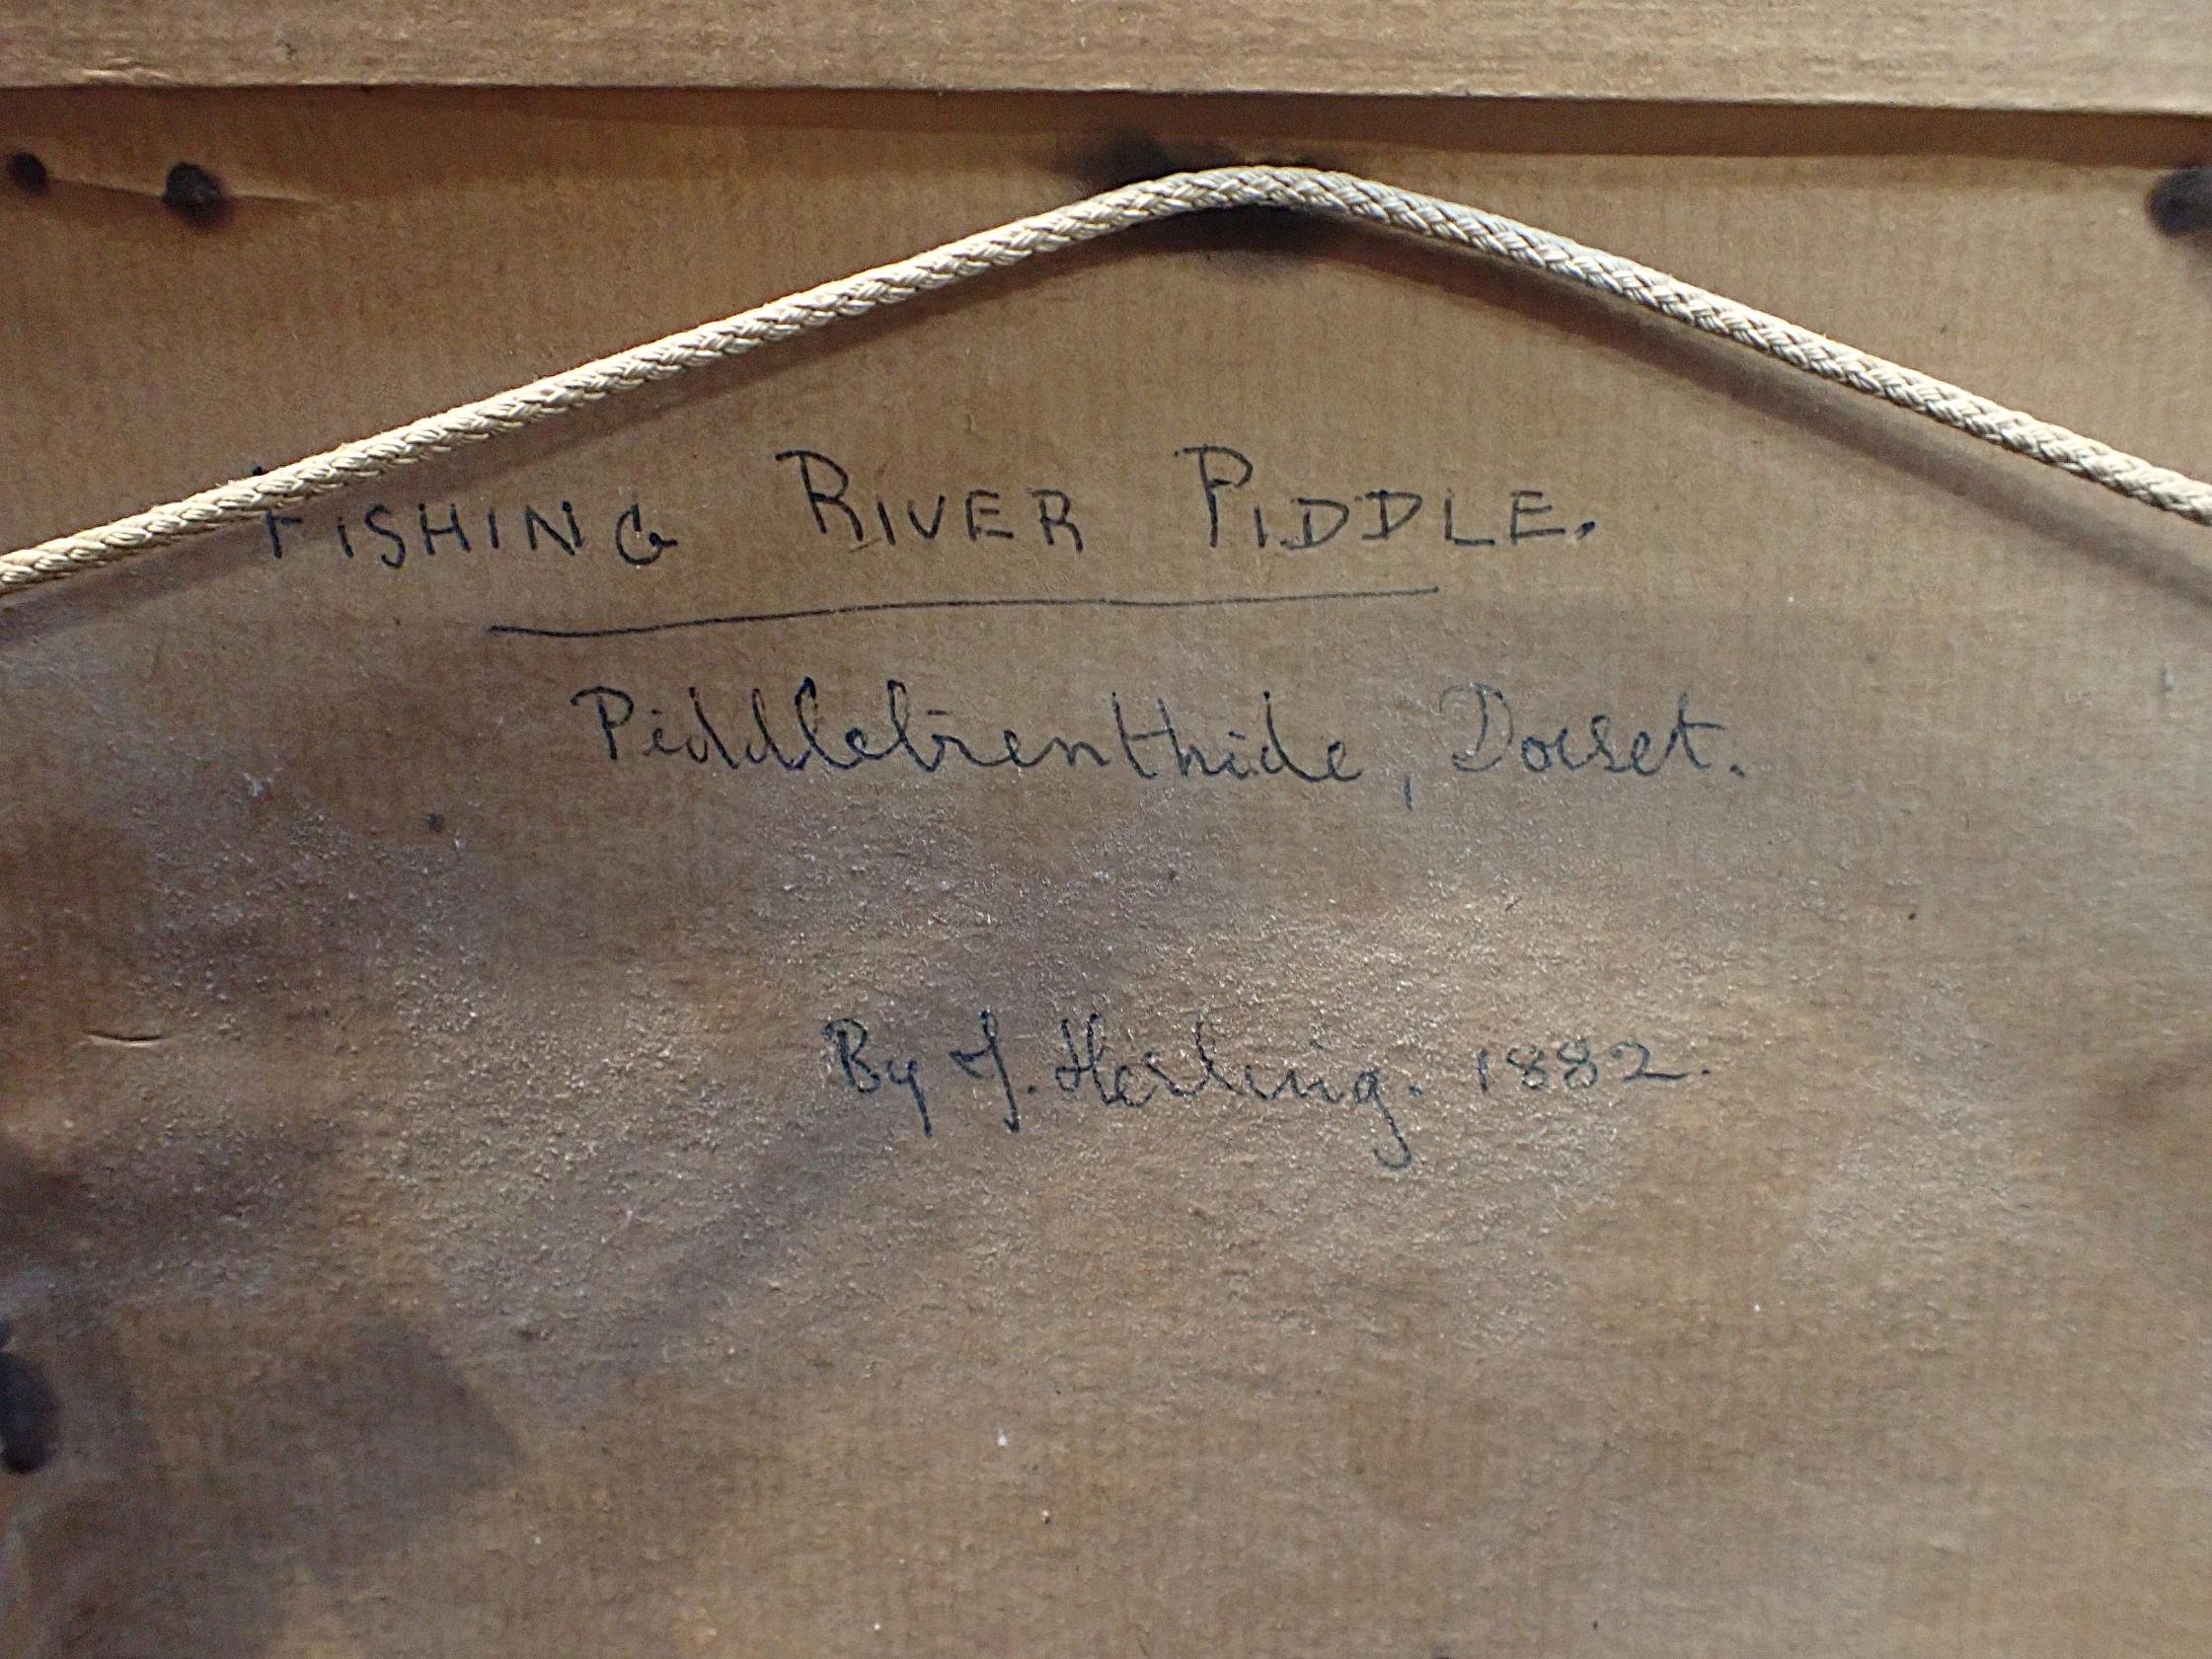 FISHING RIVER PIDDLE.
Piddlebrenthide, Dorset.
By J. Herling. 1882.